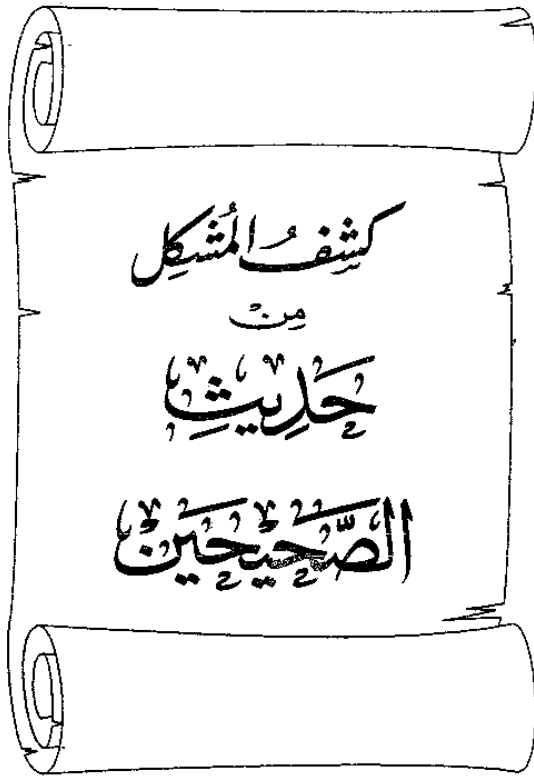 كَشِفُ المُشَكِل
مِنْ
حَدِيثِ
الصَّحِيحَين